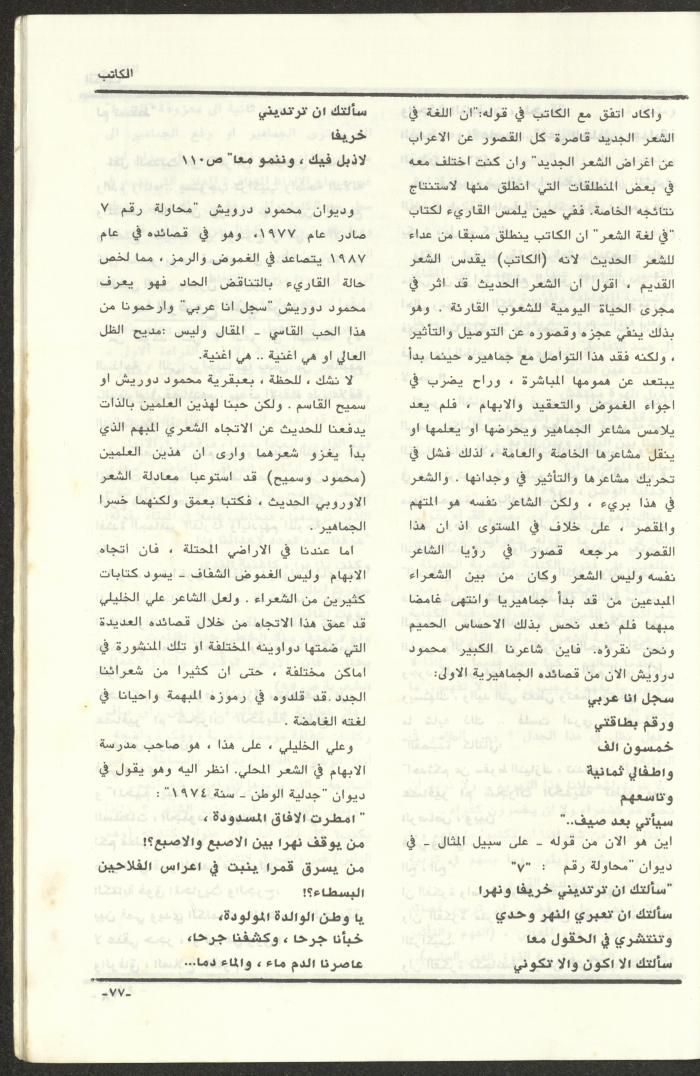 الكاتب
واكاد اتفق مع الكاتب في قوله:"ان اللغة في
الشعر الجديد قاصرة كل القصور عن الاعراب
عن اغراض الشعر الجديد" وان كنت اختلف معه
في بعض المنطلقات التي انطلق منها لاستنتاج
نتائجه الخاصة. ففي حين يلمس القاريء لكتاب
"في لغة الشعر" ان الكاتب ينطلق مسبقا من عداء
للشعر الحديث لانه (الكاتب) يقدس الشعر
القديم ، اقول ان الشعر الحديث قد اثر في
مجرى الحياة اليومية للشعوب القارئة . وهو
بذلك ينفي عجزه وقصوره عن التوصيل والتأثير
، ولكنه فقد هذا التواصل مع جماهيره حينما بدأ
يبتعد عن همومها المباشرة ، وراح يضرب في
اجواء الغموض والتعقيد والابهام ، فلم يعد
يلامس مشاعر الجماهير ويحرضها او يعلمها او
ينقل مشاعرها الخاصة والعامة ، لذلك فشل في
تحريك مشاعرها والتأثير في وجدانها . والشعر
في هذا بريء ، ولكن الشاعر نفسه هو المتهم
والمقصر ، على خلاف في المستوى اذ ان هذا
القصور مرجعه قصور في رؤيا الشاعر
نفسه وليس الشعر وكان من بين الشعراء
المبدعين من قد بدأ جماهيريا وانتهى غامضا
مبهما فلم نعد نحس بذلك الاحساس الحميم
ونحن نقرؤه. فاين شاعرنا الكبير محمود
درويش الان من قصائده الجماهيرية الاولى:
سجل انا عربي
ورقم بطاقتي
خمسون الف
واطفالي ثمانية
وتاسعهم
سيأتي بعد صيف.."
اين هو الان من قوله ــ على سبيل المثال ــ في
ديوان "محاولة رقم : "٧"
"سألتك ان ترتديني خريفا ونهرا
سألتك ان تعبري النهر وحدي
وتنتشري في الحقول معا
سألتك الا اكون والا تكوني
سألتك ان ترتديني
خريفا
لاذبل فيك ، وننمو معا" ص١١٠
وديوان محمود درويش "محاولة رقم ٧
صادر عام ١٩٧٧، وهو في قصائده في عام
١٩٨٧ يتصاعد في الغموض والرمز ، مما لخص
حالة القاريء بالتناقض الحاد فهو يعرف
محمود دوريش "سجل انا عربي" وارحمونا من
هذا الحب القاسي ــ المقال وليس :مديح الظل
العالي او هي اغنية .. هي اغنية.
لا نشك ، للحظة ، بعبقرية محمود دوريش او
سميح القاسم . ولكن حبنا لهذين العلمين بالذات
يدفعنا للحديث عن الاتجاه الشعري المبهم الذي
بدأ يغزو شعرهما وارى ان هذين العلمين
(محمود وسميح) قد استوعبا معادلة الشعر
الاوروبي الحديث ، فكتبا بعمق ولكنهما خسرا
الجماهير .
اما عندنا في الاراضي المحتلة ، فان أتجاه
الابهام وليس الغموض الشفاف ــ يسود كتابات
كثيرين من الشعراء . ولعل الشاعر علي الخليلي
قد عمق هذا الاتجاه من خلال قصائده العديدة
التي ضمتها دواوينه المختلفة او تلك المنشورة في
اماكن مختلفة ، حتى ان كثيرا من شعرائنا
الجدد.قد قلدوه في رموزه المبهمة واحيانا في
لغته الغامضة .
وعلي الخليلي ، على هذا ، هو صاحب مدرسة
الابهام في الشعر المحلي. انظر اليه وهو يقول في
ديوان "جدلية الوطن ــ سنة ١٩٧٤" :
" امطرت الافاق المسدودة ،
من يوقف نهرا بين الاصبع والاصبع؟!
من يسرق قمرا ينبت في اعراس الفلاحين
البسطاء؟!!
يا وطن الوالدة المولودة،
خبأنا جرحا ، وكشفنا جرحا،
عاصرنا الدم ماء ، والماء دما...
ـ٧٧ـ